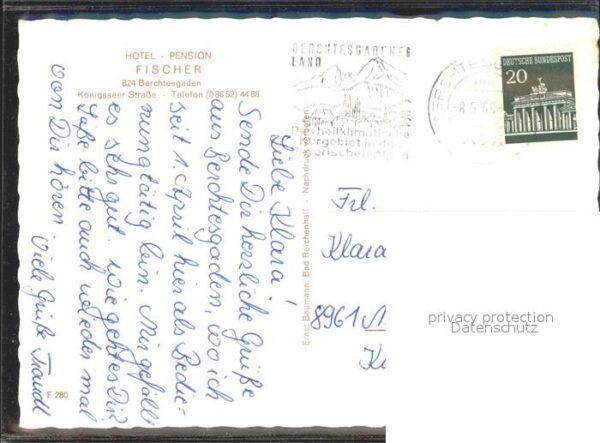 HOTEL - PENSION
FISCHER
824 Berchtesgaden
Königsseer Straße - Telefon (0 86 52) 44 88
Liebe Klara!
Sende Dir herzliche Grüße
aus Berchtesgaden, wo ich
seit 1. April hier als Bedie-
nung tätig bin. Mir gefällt
es sehr gut. Wie geht es Dir?
Laße bitte auch wieder mal
von Dir hören.
Viele Grüße Traudl
F 280
Ernst Baumann, Bad Reichenhall - Nachdruck verboten
BERCHTESGADENER
LAND
Das heilklimatische
Kurgebiet in den
Bayerischen Alpen
8.5.69
DEUTSCHE BUNDESPOST
20
Frl.
Klara
8961
privacy protection
Datenschutz